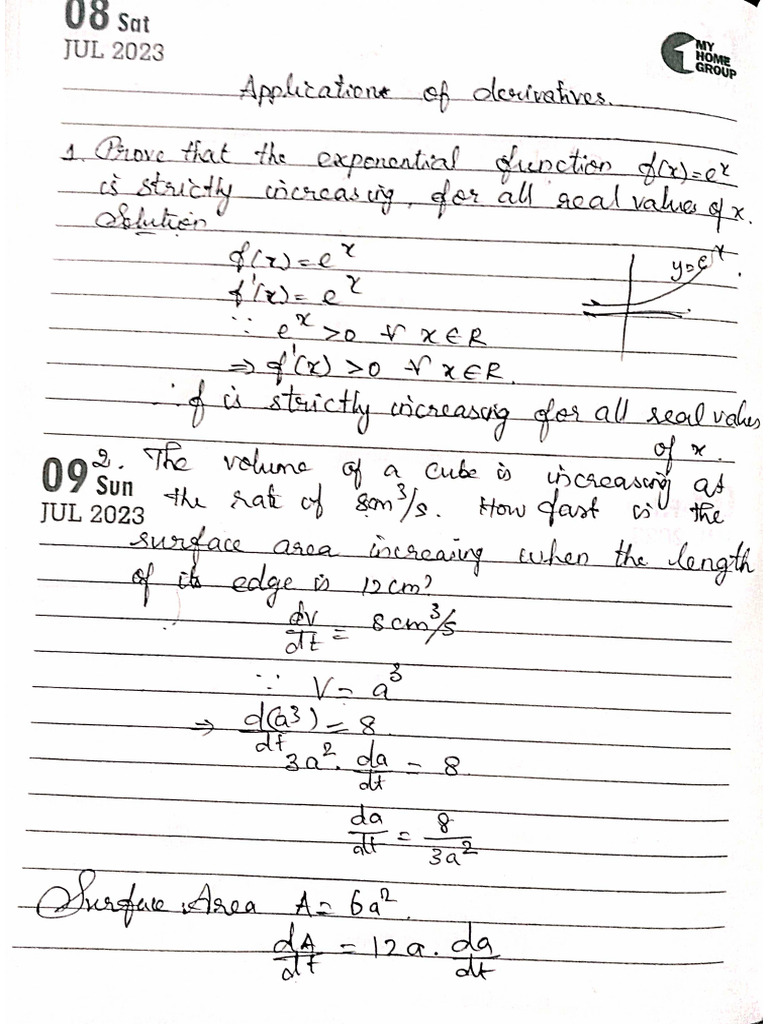 08 Sat
JUL 2023
MY
HOME
GROUP
Applications of derivatives.
1. Prove that the exponential function f(x)=eˣ
is strictly increasing, for all real values of x.
Solution
f(x)=eˣ
f'(x)=eˣ
y=eˣ
∵ eˣ>0 ∀ x∈R
⇒ f'(x)>0 ∀ x∈R.
∴ f is strictly increasing for all real values
of x.
2. The volume of a cube is increasing at
09 Sun
the rate of 8cm³/s. How fast is the
JUL 2023
surface area increasing when the length
of its edge is 12cm?
dV/dt = 8cm³/s
∵ V = a³
⇒ d(a³)/dt = 8
3a². da/dt = 8
da/dt = 8/3a²
Surface Area A = 6a².
dA/dt = 12a. da/dt